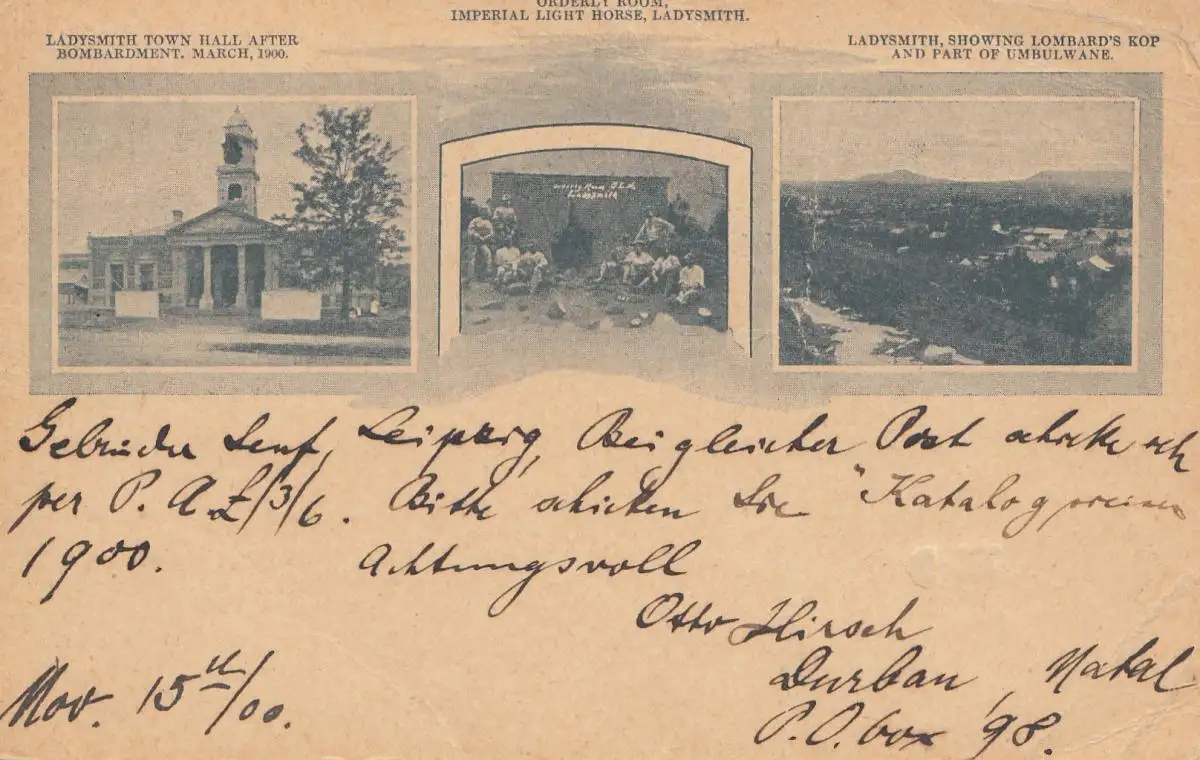 ORDERLY ROOM,
IMPERIAL LIGHT HORSE, LADYSMITH.
LADYSMITH TOWN HALL AFTER
BOMBARDMENT. MARCH, 1900.
LADYSMITH, SHOWING LOMBARD'S KOP
AND PART OF UMBULWANE.
Orderly Room, I.L.H.
Ladysmith
Gebrüder Senf, Leipzig, Bei gleicher Post schicke ich
per P. A £/3/6. Bitte schicken Sie "Katalog
1900. Achtungsvoll
Otto Hirsch
Durban, Natal
P.O. box 98.
Nov. 15th/00.